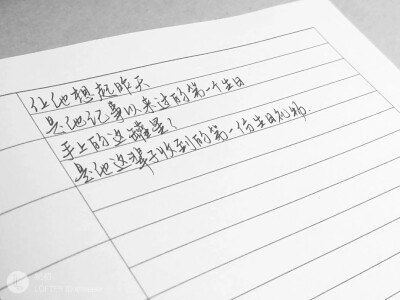 让他想起昨天
是他记事以来过的第一个生日
手上的这罐星星
是他这辈子收到的第一份生日礼物.